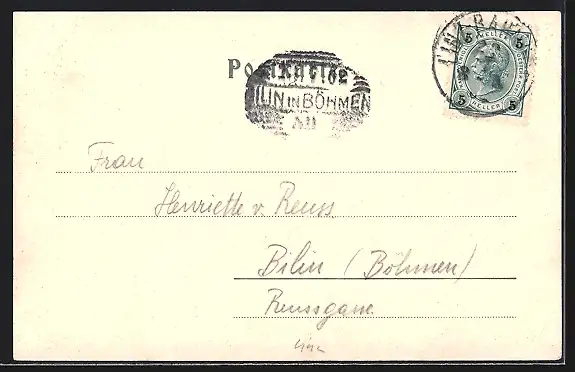 Postkarte
ILIN in BÖHMEN
5 HELLER 5
5 HELLER 5
Frau
Henriette v. Reuss
Bilin (Böhmen)
Reussgasse